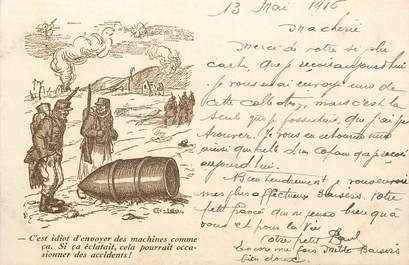 13 Mai 1916
Ma chérie
Merci de votre si jolie
carte, que je reçois aujourd'hui.
Je vous en ai envoyé une de
cette collection, mais c'est la
seule que je possédais, que j'ai pu
trouver. Je vous en retourne une
ainsi qu'elle d'un Copain que je reçois
aujourd'hui.
Bien tendrement vous envoie
mes plus affectueux Baisers. Votre
petit fiancé qui ne pense bien qu'à
vous et pour la Vie
Votre petit Paul
encore une fois Mille Baisers
bien doux.
— C'est idiot d'envoyer des machines comme
ça. Si ça éclatait, cela pourrait occa-
sionner des accidents !